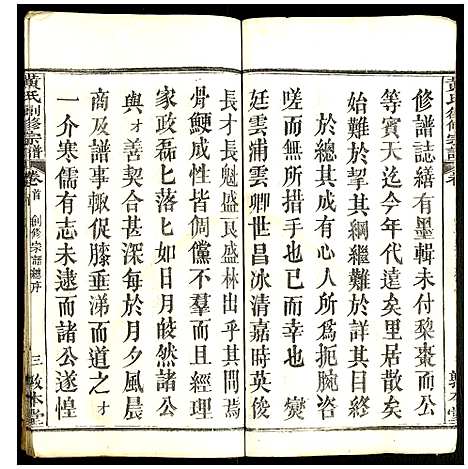 修譜誌繕有墨輯未付棃棗而
等賓天迄今年代遠矣里居散
始難於其綱繼難於詳其目終
於總其成以人心人所為扼腕
嗟而無措手也幸而已　爕
廷雲浦雲昌冰清嘉時英俊
長才長魁盛長盛林出乎其間焉
骨鯁成均倜儻不羣而且經理
家政磊七落七日皎然諸公
與才善契合甚深每於月夕風晨
商及譜事輙促膝垂涕而道之才
一介寒儒有志未逮而諸公遂惶
黃氏創修宗譜　卷首　創修宗譜總序　三　敦本堂